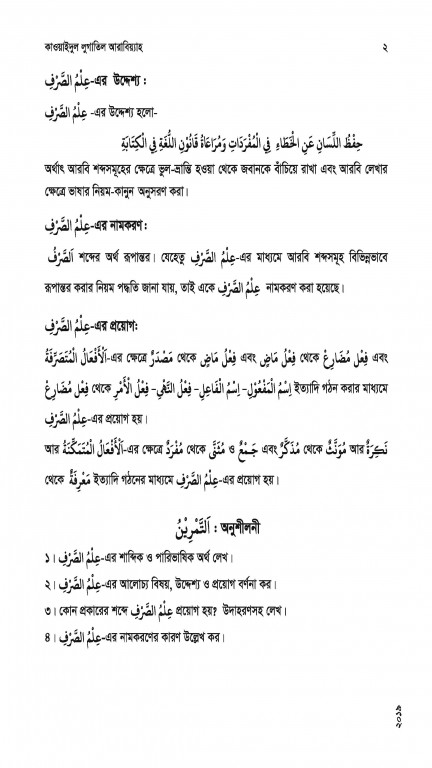 কাওয়াইদুল লুগাতিল আরাবিয়্যাহ ২
عِلْمُ الصَّرْفِ-এর উদ্দেশ্য :
عِلْمُ الصَّرْفِ -এর উদ্দেশ্য হলো-
حِفْظُ اللِّسَانِ عَنِ الْخَطَاءِ فِي الْمُفْرَدَاتِ وَمُرَاعَاةُ قَانُوْنِ اللُّغَةِ فِي الْكِتَابَةِ
অর্থাৎ আরবি শব্দসমূহের ক্ষেত্রে ভুল-ভ্রান্তি হওয়া থেকে জবানকে বাঁচিয়ে রাখা এবং আরবি লেখার
ক্ষেত্রে ভাষার নিয়ম-কানুন অনুসরণ করা।
عِلْمُ الصَّرْفِ-এর নামকরণ :
اَلصَّرْفُ শব্দের অর্থ রূপান্তর। যেহেতু عِلْمُ الصَّرْفِ-এর মাধ্যমে আরবি শব্দসমূহ বিভিন্নভাবে
রূপান্তর করার নিয়ম পদ্ধতি জানা যায়, তাই একে عِلْمُ الصَّرْفِ নামকরণ করা হয়েছে।
عِلْمُ الصَّرْفِ-এর প্রয়োগ:
اَلْأَفْعَالُ الْمُتَصَرِّفَةُ-এর ক্ষেত্রে مَصْدَرٌ থেকে فِعْلُ مَاضٍ এবং فِعْلُ مَاضٍ থেকে فِعْل مُضَارِعْ এবং
فِعْل مُضَارِعْ থেকে فِعْلُ الْأَمْرِ -فِعْلُ النَّهْيِ -اِسْمُ الْفَاعِلِ -اِسْمُ الْمَفْعُوْلِ ইত্যাদি গঠন করার মাধ্যমে
عِلْمُ الصَّرْفِ-এর প্রয়োগ হয়।
আর اَلْأَفْعَالُ الْمُتَمَكِّنَةُ-এর ক্ষেত্রে مُفْرَدٌ থেকে مُثَنَّى ও جَمْعٌ এবং مُذَكَّرٌ থেকে مُؤَنَّثٌ আর نَكِرَةٌ
থেকে مَعْرِفَةٌ ইত্যাদি গঠনের মাধ্যমে عِلْمُ الصَّرْفِ-এর প্রয়োগ হয়।
اَلتَّمْرِيْنُ : অনুশীলনী
১। عِلْمُ الصَّرْفِ-এর শাব্দিক ও পারিভাষিক অর্থ লেখ।
২। عِلْمُ الصَّرْفِ-এর আলোচ্য বিষয়, উদ্দেশ্য ও প্রয়োগ বর্ণনা কর।
৩। কোন প্রকারের শব্দে عِلْمُ الصَّرْفِ প্রয়োগ হয়? উদাহরণসহ লেখ।
৪। عِلْمُ الصَّرْفِ-এর নামকরণের কারণ উল্লেখ কর।
২০১৯